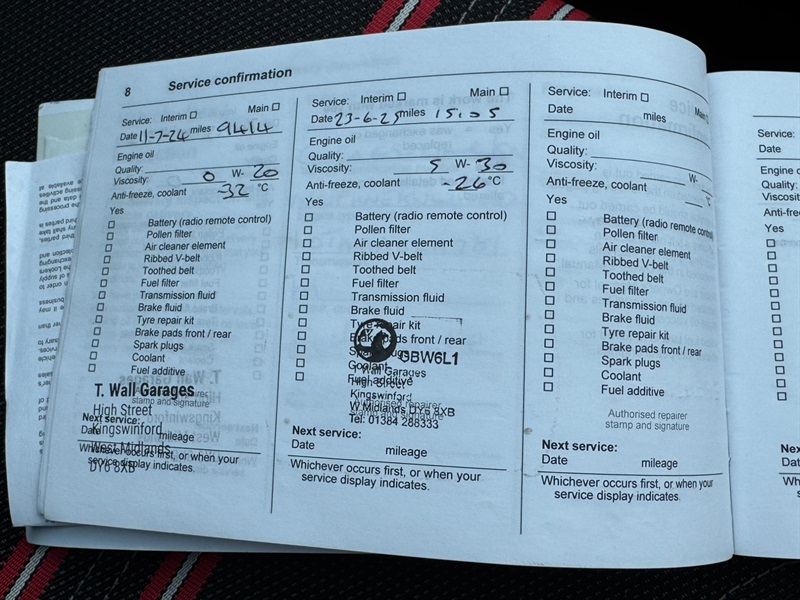 8 Service confirmation
Service: Interim Main
Date 11-7-24 miles 9414
Engine oil
Quality:
Viscosity: 0 W- 20
Anti-freeze, coolant -32 °C
Yes
Battery (radio remote control)
Pollen filter
Air cleaner element
Ribbed V-belt
Toothed belt
Fuel filter
Transmission fluid
Brake fluid
Tyre repair kit
Brake pads front / rear
Spark plugs
Coolant
Fuel additive
T. Wall Garages
stamp and signature
High Street
Next service:
Kingswinford
Date mileage
West Midlands
Whichever occurs first, or when your
service display indicates.
DY6 8XB
Service: Interim Main
Date 23-6-25 miles 15.05
Engine oil
Quality:
Viscosity: 5 W- 30
Anti-freeze, coolant -26 °C
Yes
Battery (radio remote control)
Pollen filter
Air cleaner element
Ribbed V-belt
Toothed belt
Fuel filter
Transmission fluid
Brake fluid
Tyre repair kit
Brake pads front / rear
Spark plugs
GBW6L1
Coolant
Wall Garages
Fuel additive
High Street
Kingswinford
Authorised repairer
W Midlands DY6 8XB
stamp and signature
Tel: 01384 288333
Next service:
Date mileage
Whichever occurs first, or when your
service display indicates.
Service: Interim Main
Date miles
Engine oil
Quality:
Viscosity: W-
Anti-freeze, coolant °C
Yes
Battery (radio remote control)
Pollen filter
Air cleaner element
Ribbed V-belt
Toothed belt
Fuel filter
Transmission fluid
Brake fluid
Tyre repair kit
Brake pads front / rear
Spark plugs
Coolant
Fuel additive
Authorised repairer
stamp and signature
Next service:
Date mileage
Whichever occurs first, or when your
service display indicates.
Service:
Date
Engine
Quality:
Yes
Date